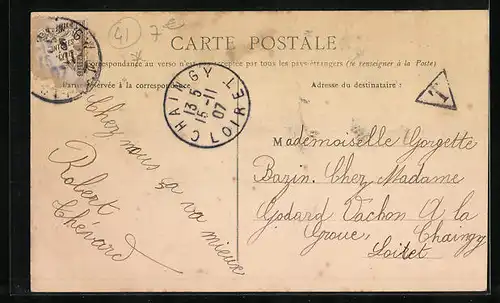 41
7€
CARTE POSTALE
La Correspondance au verso n'est pas acceptée par tous les pays étrangers (se renseigner à la Poste)
Partie réservée à la correspondance
Adresse du destinataire :
CHAINGY
13 5
15-11
07
LOIRET
T
Chez nous ça va mieux
Robert
Chévard
Mademoiselle Gorgette
Bazin. Chez Madame
Godard Vachon A la
Groue, Chaingy
Loiret